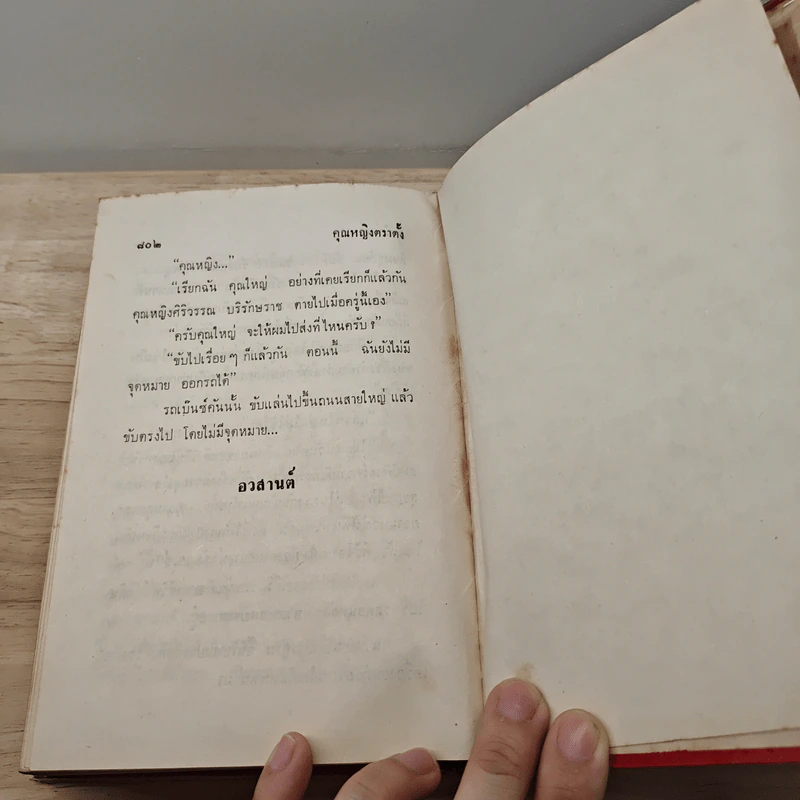 ๘๐๒ คุณหญิงตราตั้ง
"คุณหญิง..."
"เรียกฉัน คุณใหญ่ อย่างที่เคยเรียกก็แล้วกัน
คุณหญิงศิริวรรณ บริรักษราช ตายไปเมื่อครู่นี้เอง"
"ครับคุณใหญ่ จะให้ผมไปส่งที่ไหนครับ?"
"ขับไปเรื่อยๆ ก็แล้วกัน ตอนนี้ ฉันยังไม่มี
จุดหมาย ออกรถได้"
รถเบ๊นซ์คันนั้น ขับแล่นไปขึ้นถนนสายใหญ่ แล้ว
ขับตรงไป โดยไม่มีจุดหมาย...
อวสานต์